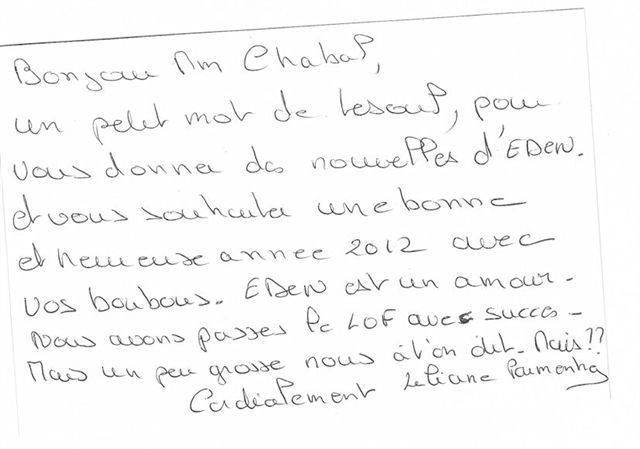 Bonjour Mm Chabal,
un petit mot de Lesoul, pour
vous donner des nouvelles d'EDEN.
et vous souhaiter une bonne
et heureuse annee 2012 avec
vos boubous. EDEN est un amour -
Nous avons passes le LOF avec succes -
Mais un peu grosse nous à t'on dit - Mais??
Cordialement Liliane